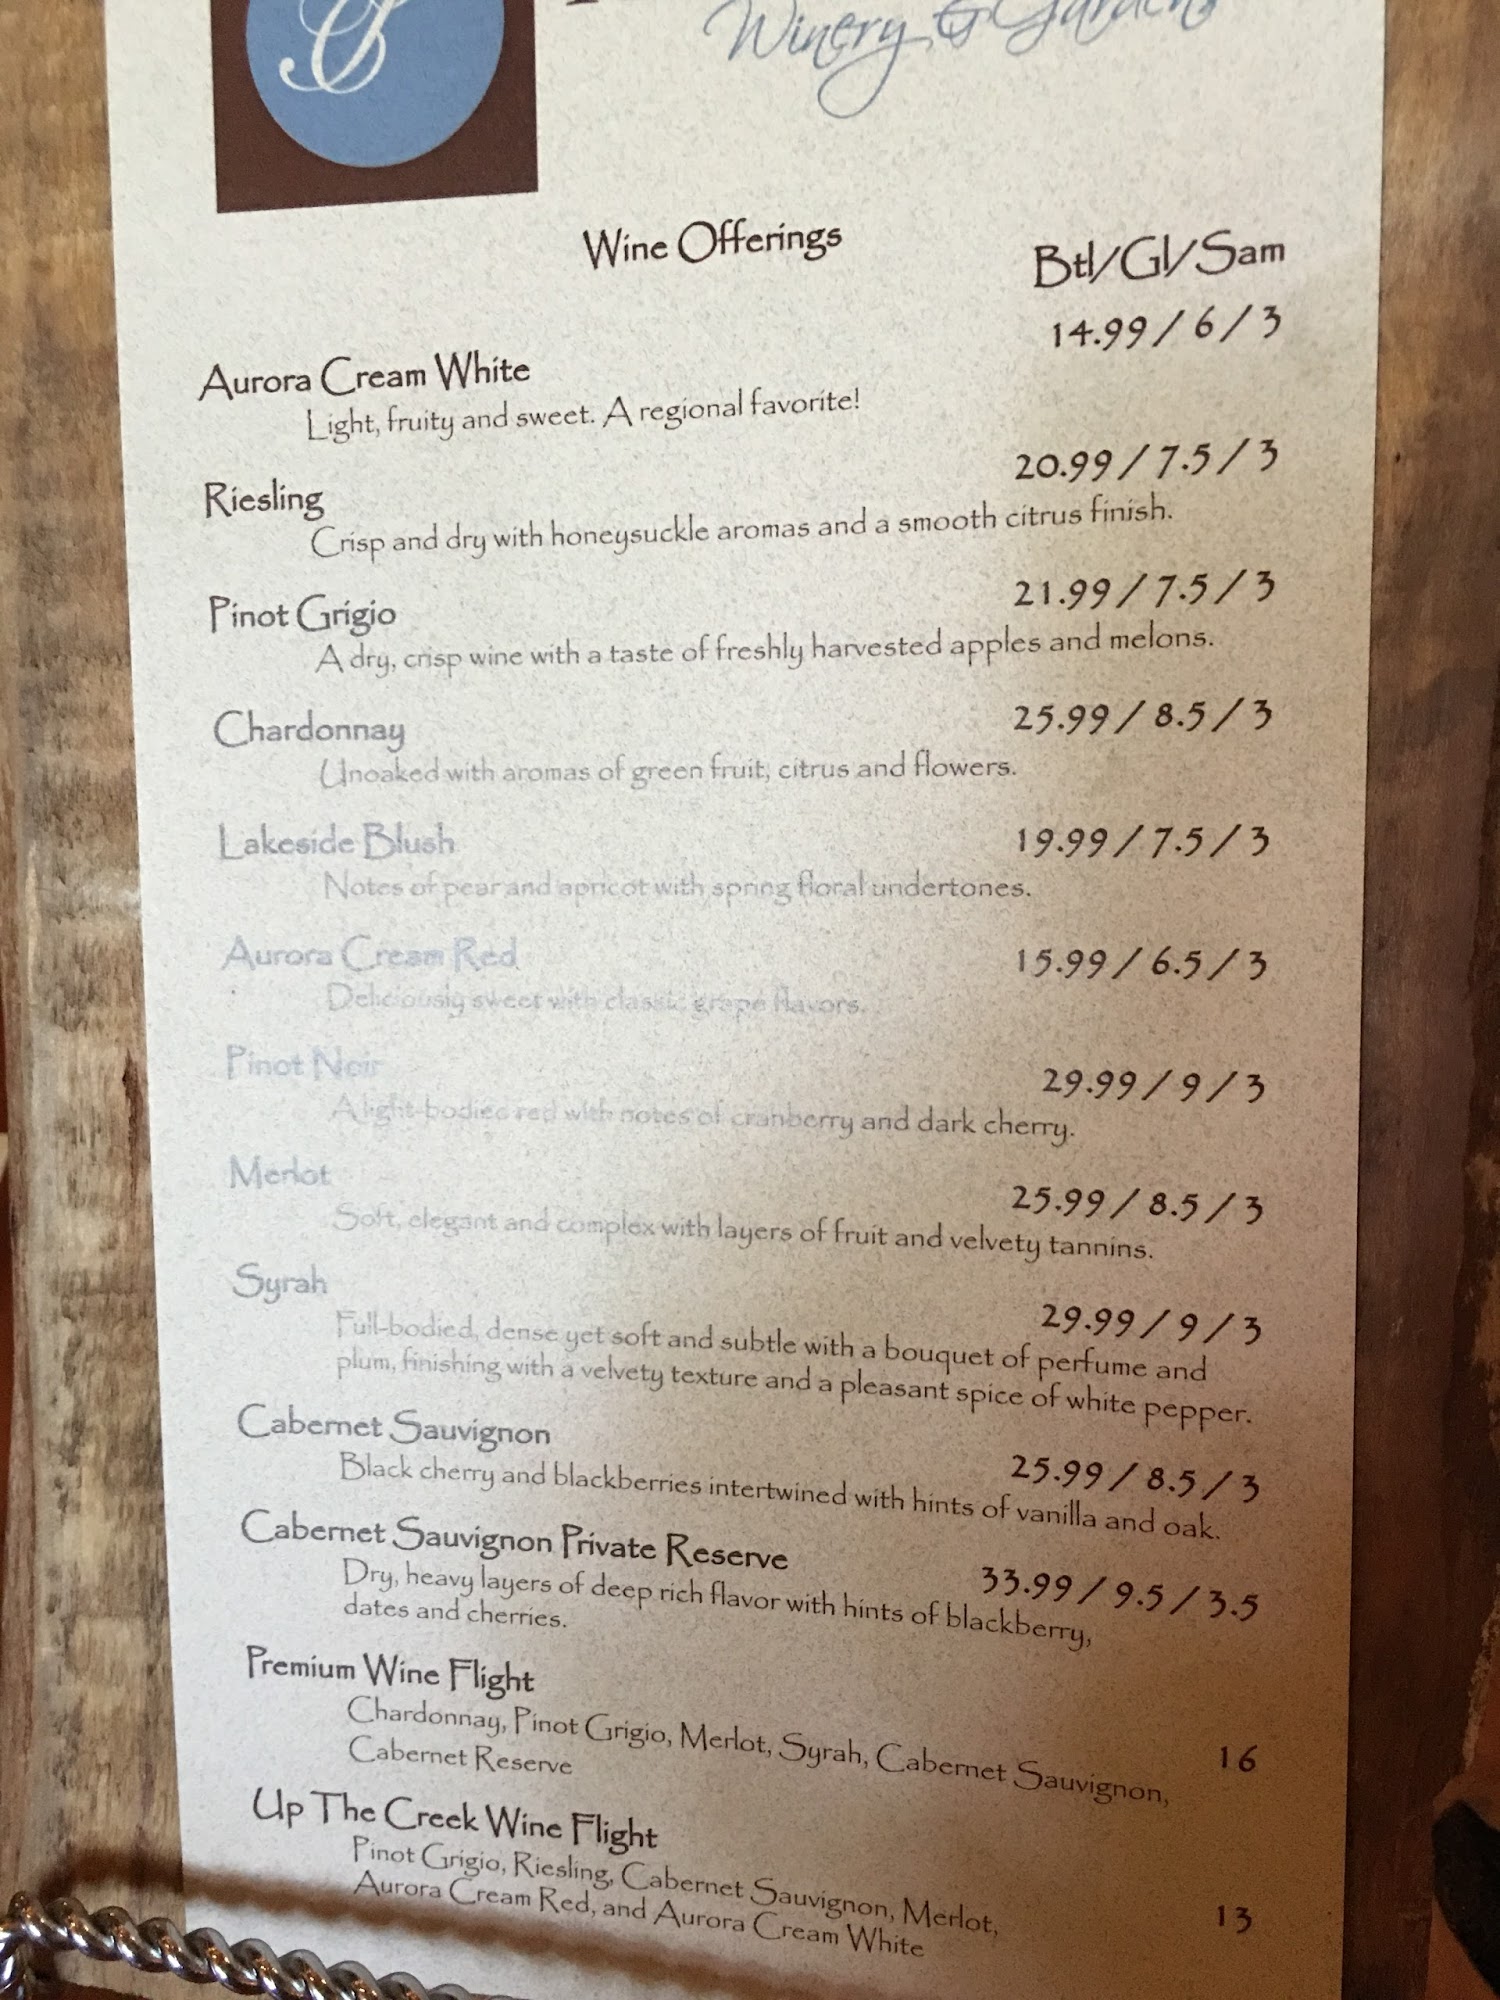 Winery & Gardens
Wine Offerings
Btl/Gl/Sam
14.99 / 6 / 3
Aurora Cream White
Light, fruity and sweet. A regional favorite!
20.99 / 7.5 / 3
Riesling
Crisp and dry with honeysuckle aromas and a smooth citrus finish.
21.99 / 7.5 / 3
Pinot Grigio
A dry, crisp wine with a taste of freshly harvested apples and melons.
Chardonnay 25.99 / 8.5 / 3
Unoaked with aromas of green fruit, citrus and flowers.
Lakeside Blush 19.99 / 7.5 / 3
Notes of pear and apricot with spring floral undertones.
Aurora Cream Red 15.99 / 6.5 / 3
Deliciously sweet with classic grape flavors.
Pinot Noir 29.99 / 9 / 3
A light-bodied red with notes of cranberry and dark cherry.
Merlot 25.99 / 8.5 / 3
Soft, elegant and complex with layers of fruit and velvety tannins.
Syrah 29.99 / 9 / 3
Full-bodied, dense yet soft and subtle with a bouquet of perfume and
plum, finishing with a velvety texture and a pleasant spice of white pepper.
Cabernet Sauvignon 25.99 / 8.5 / 3
Black cherry and blackberries intertwined with hints of vanilla and oak.
Cabernet Sauvignon Private Reserve 33.99 / 9.5 / 3.5
Dry, heavy layers of deep rich flavor with hints of blackberry,
dates and cherries.
Premium Wine Flight
Chardonnay, Pinot Grigio, Merlot, Syrah, Cabernet Sauvignon, 16
Cabernet Reserve
Up The Creek Wine Flight
Pinot Grigio, Riesling, Cabernet Sauvignon, Merlot, 13
Aurora Cream Red, and Aurora Cream White